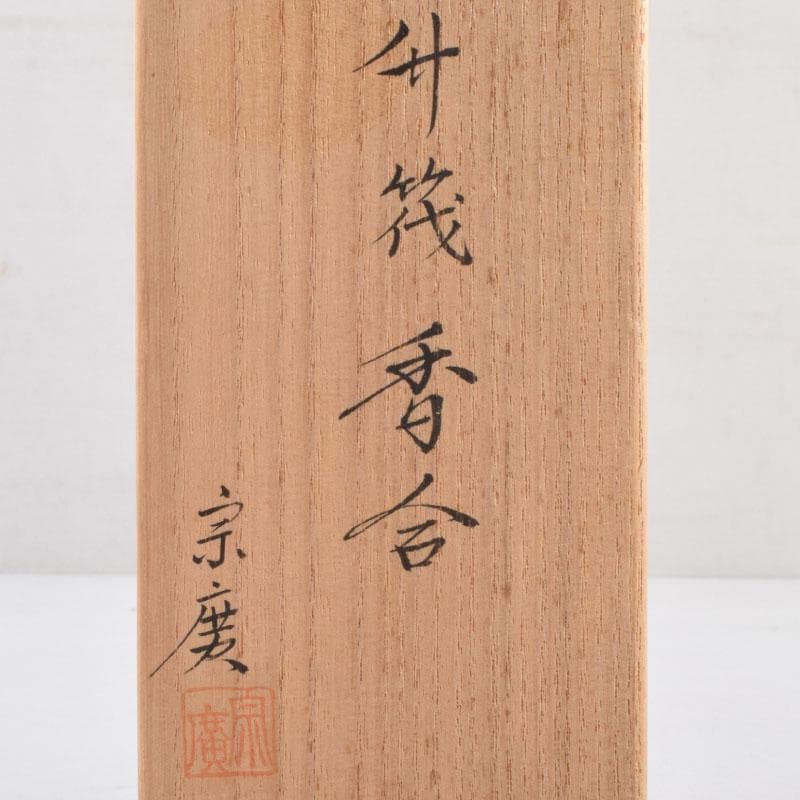 升筏香合
宗廣
宗廣